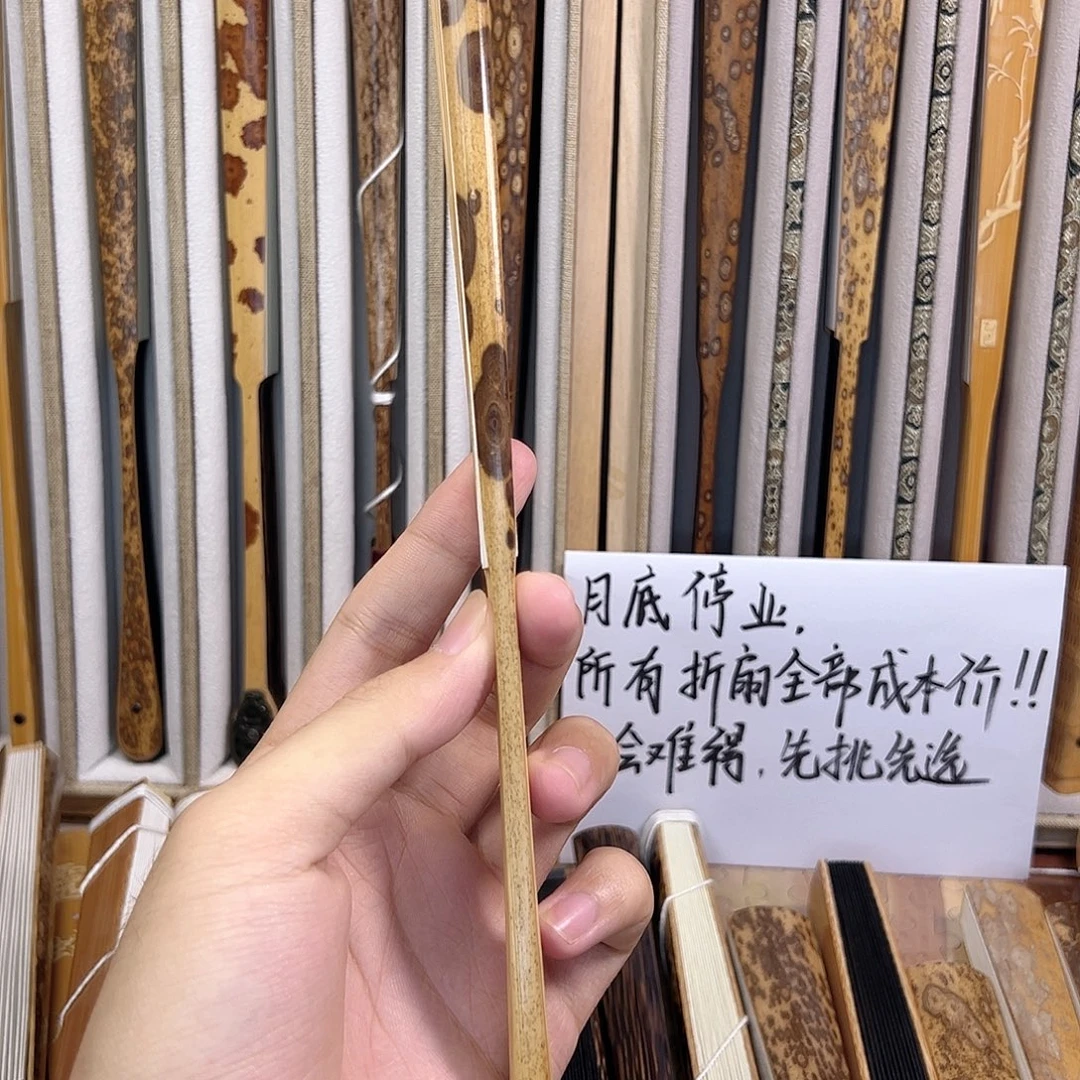 月底停业.
所有折扇全部成本价!!
会难得.先挑先选